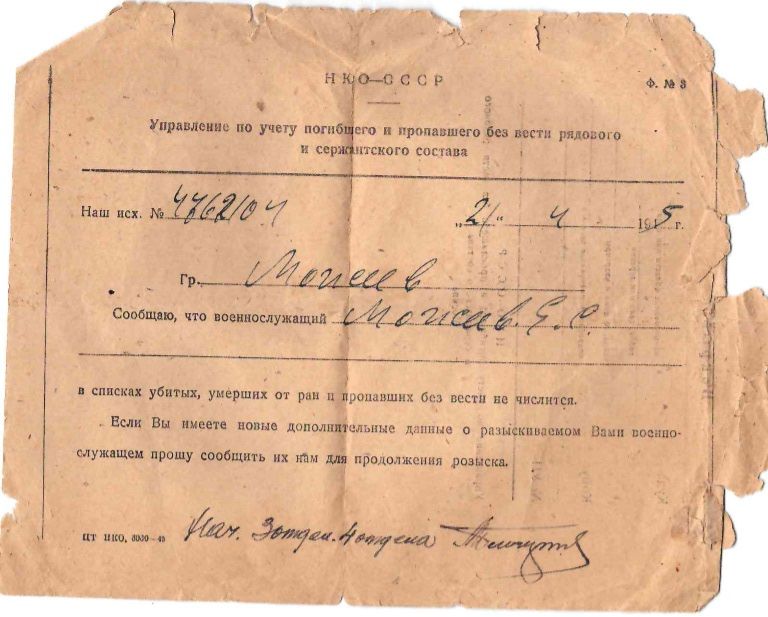 НКО—СССР
Ф. № 3
Управление по учету погибшего и пропавшего без вести рядового
и сержантского состава
Наш исх. № 4762104 „21“ 4 1945 г.
Гр. Моисеев
Сообщаю, что военнослужащий Моисеев. Е. С.
в списках убитых, умерших от ран и пропавших без вести не числится.
Если Вы имеете новые дополнительные данные о разыскиваемом Вами военно-
служащем прошу сообщить их нам для продолжения розыска.
ЦТ НКО. 3030—45
Нач. 3 отдел. 4 отдела